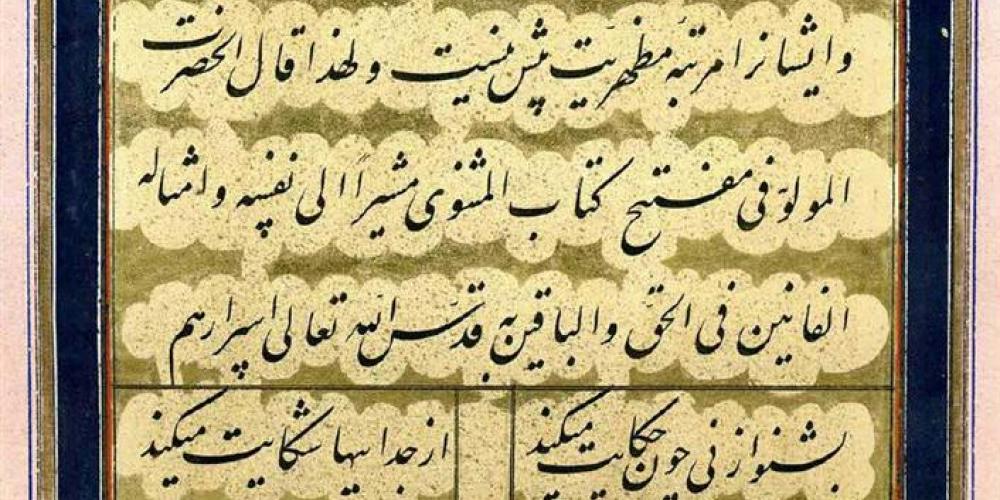 و ایشانرا مرتبه مظهریت پیش نیست و لهذا قال الحضرت
المولوّ فی مفتتح کتاب المثنوی مشیراً الی نفسه و امثاله
الفانین فی الحقّ والباقین به قدّس الله تعالی اسرارهم
بشنو از نی چون حکایت میکند از جداییها شکایت میکند